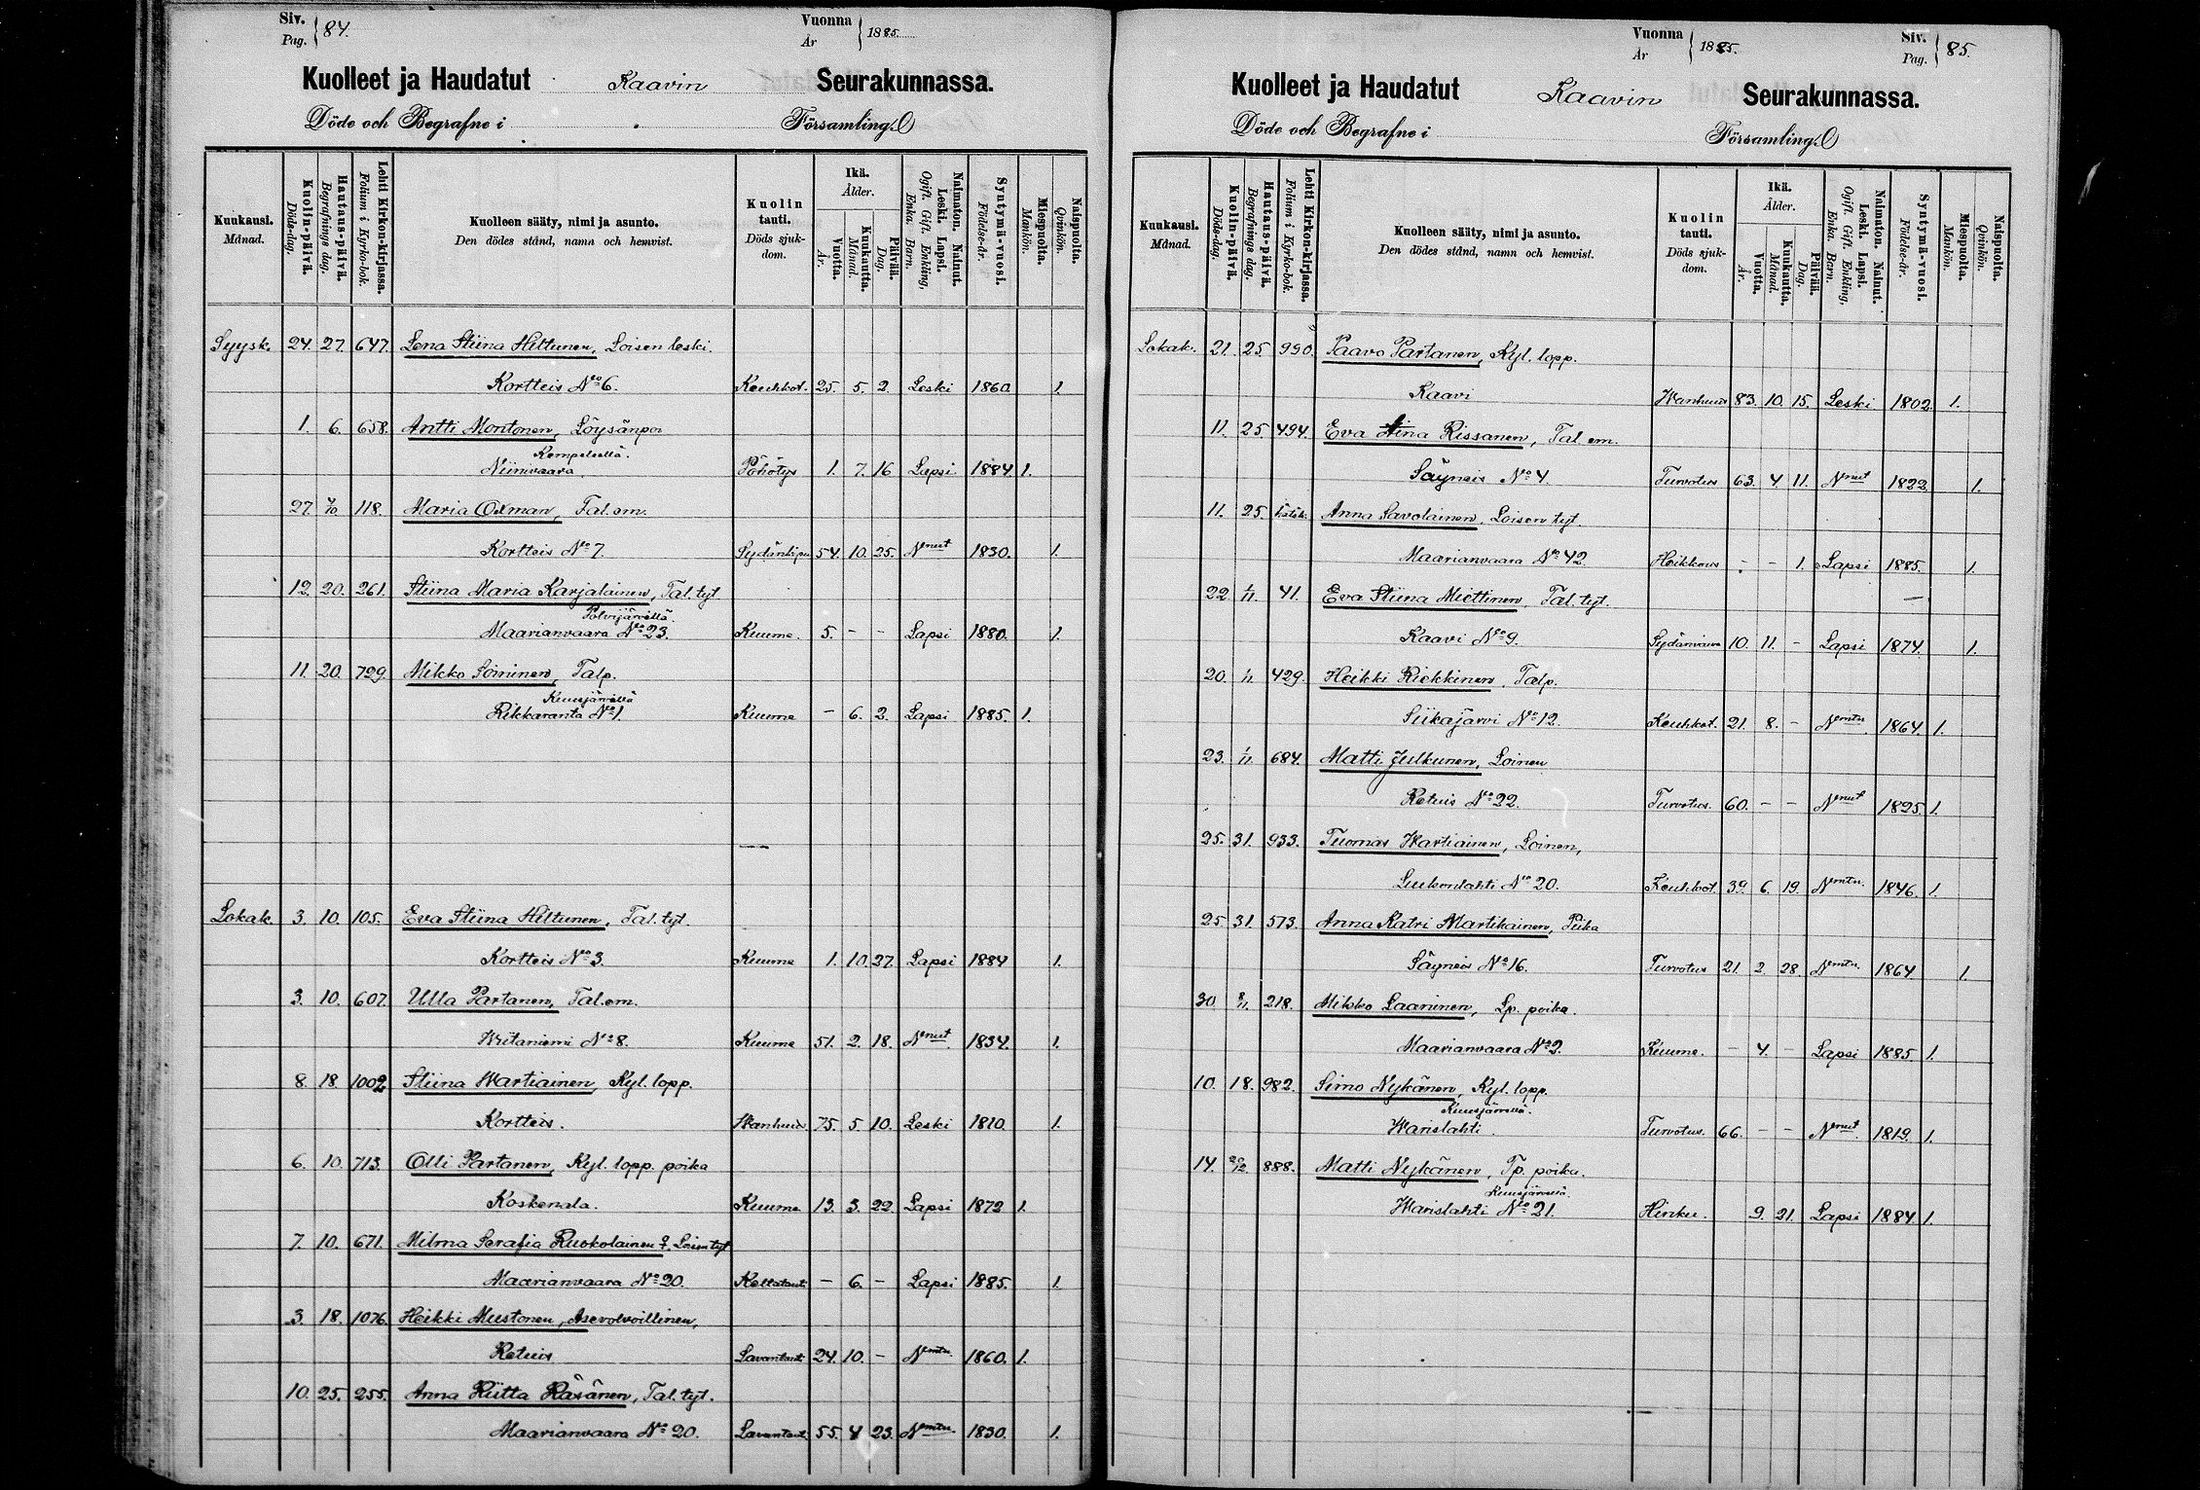 Siv. Pag. 84. Vuonna År 1885.
Kuolleet ja Haudatut Kaavin Seurakunnassa.
Döde och Begrafne i Församling.
Kuukausi. Månad. Kuolin-päivä. Döds-dag. Hautaus-päivä. Begrafnings dag. Lehti Kirkon-kirjassa. Folium i Kyrko-bok. Kuolleen sääty, nimi ja asunto. Den dödes stånd, namn och hemvist. Kuolin tauti. Döds sjuk-dom. Ikä. Ålder. Vuotta. År. Kuukautta. Månad. Päivää. Dag. Naimaton. Nainut. Leski. Lapsi. Ogift. Gift. Enkling, Enka. Barn. Syntymä-vuosi. Födelse-år. Miespuolta. Mankön. Naispuolta. Qvinkön.
Syysk. 24. 27. 647. Lena Stiina Hiltunen, Loisen leski.
Kortteis No 6. Keuhkot. 25. 5. 2. Leski 1860. 1.
1. 6. 658. Antti Montonen, Löysänpoi
Kempeleellä.
Niinivaara Pöhötys 1. 7. 16 Lapsi 1884. 1.
27. 4/10 118. Maria Oxman, Tal. em.
Kortteis No 7. 54. 10. 25. Nnut 1830. 1.
12. 20. 261. Stiina Maria Karjalainen, Tal. tyt.
Polvijärvellä.
Maarianvaara No 23. Kuume. 5. - - Lapsi 1880. 1.
11. 20. 729. Mikko Soininen, Talp.
Kuusjärvellä
Rikkaranta No 1. Kuume - 6. 2. Lapsi 1885. 1.
Lokak. 3. 10. 105. Eva Stiina Hiltunen, Tal. tyt.
Kortteis No 3. Kuume 1. 10. 27. Lapsi 1884 1.
3. 10. 607. Ulla Partanen, Tal. em.
Writaniemi No 8. Kuume 51. 2. 18. Nnut 1834. 1.
8. 18. 1002 Stiina Wartiainen, Kyl. lopp.
Kortteis. Wanhuus 75. 5. 10. Leski 1810. 1.
6. 10. 713. Olli Partanen, Kyl. lopp. poika
Koskenala. Kuume 13. 3. 22. Lapsi 1872 1.
7. 10. 671. Milma Serafia Ruokolainen, Loisen tyt
Maarianvaara No 20. Keltataut - 6. - Lapsi 1885. 1.
3. 18. 1076. Heikki Mustonen, Asevelvollinen,
Retuis Lavantaut 24. 10. - Nmtn. 1860. 1.
10. 25. 255. Anna Riitta Räsänen, Tal. tyt.
Maarianvaara No 20. Lavantaut 55. 4 23. Nmtn. 1830. 1.
Vuonna År 1885. Siv. Pag. 85.
Kuolleet ja Haudatut Kaavin Seurakunnassa.
Döde och Begrafne i Församling.
Kuukausi. Månad. Kuolin-päivä. Döds-dag. Hautaus-päivä. Begrafnings dag. Lehti Kirkon-kirjassa. Folium i Kyrko-bok. Kuolleen sääty, nimi ja asunto. Den dödes stånd, namn och hemvist. Kuolin tauti. Döds sjuk-dom. Ikä. Ålder. Vuotta. År. Kuukautta. Månad. Päivää. Dag. Naimaton. Nainut. Leski. Lapsi. Ogift. Gift. Enkling, Enka. Barn. Syntymä-vuosi. Födelse-år. Miespuolta. Mankön. Naispuolta. Qvinkön.
Lokak. 21. 25. 990. Paavo Partanen, Kyl. lopp.
Kaavi Wanhuus 83. 10. 15. Leski 1802. 1.
11. 25. 494. Eva Rissanen, Tal. em.
Säyneis No 4. Turvotus 63. 4. 11. Nnut 1822. 1.
11. 25. Anna Savolainen, Loisen tyt.
Maarianvaara No 42. Heikkous - - 1. Lapsi 1885. 1.
22. 1/11. 41. Eva Stiina Miettinen, Tal. tyt.
Kaavi No 9. 10. 11. - Lapsi 1874. 1.
20. 1/11 429. Heikki Riekkinen, Talp.
Siikajärvi No 12. Keuhkot. 21. 8. - Nmtn 1864. 1.
23. 1/11. 684. Matti Julkunen, Loinen
Retuis No 22. Turvotus. 60. - - Nnut 1825. 1.
25. 31. 933. Tuomas Wartiainen, Loinen,
Luikonlahti No 20. Keuhkot. 39. 6. 19. Nmtn. 1846. 1.
25. 31. 573. Anna Katri Martikainen, Piika
Säyneis No 16. Turvotus 21. 2. 28. Nmtn. 1864. 1.
30. 8/11. 218. Mikko Laaninen, Lp. poika.
Maarianvaara No 2. Kuume. - 4. - Lapsi 1885. 1.
10. 18. 982. Simo Nykänen, Kyl. lopp.
Kuusjärvellä.
Warislahti. Turvotus. 66. - - Nnut. 1819. 1.
14. 20/12. 888. Matti Nykänen, Tp. poika.
Kuusjärvellä.
Warislahti No 21. Hinku. 9. 21. Lapsi 1884. 1.